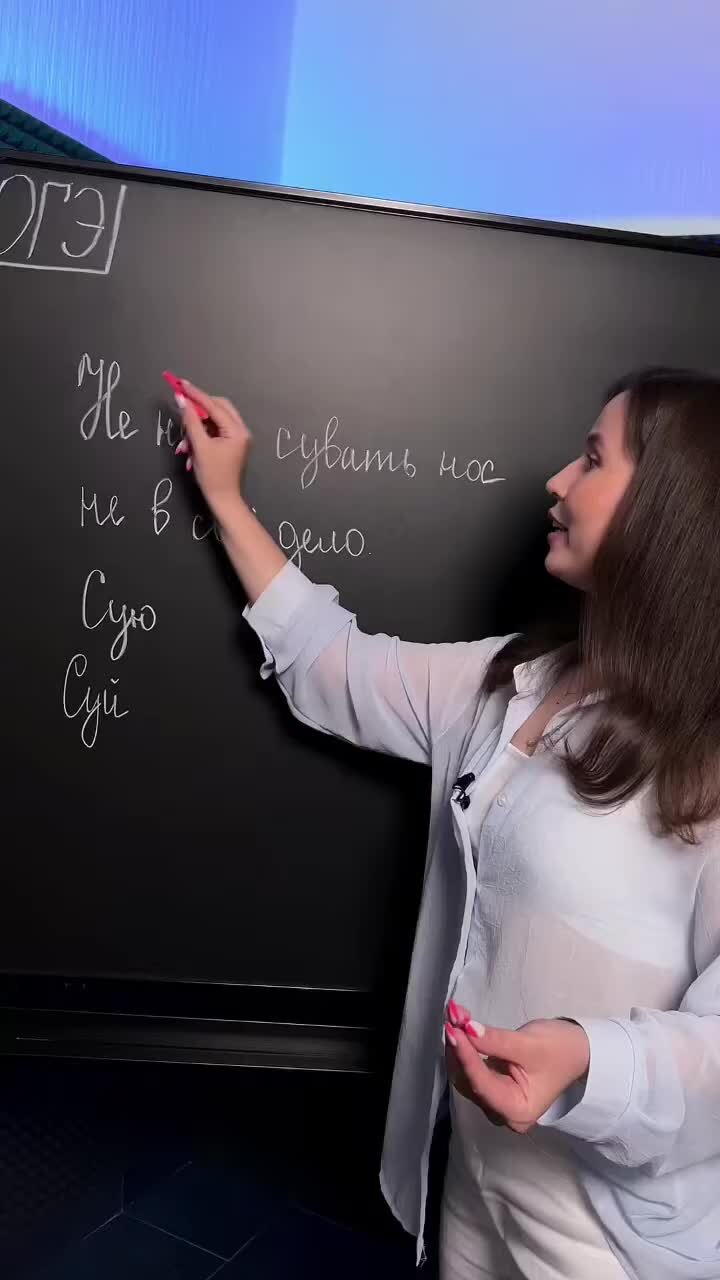 ОГЭ
Не сувать нос
не в дело.
Сую
Суй